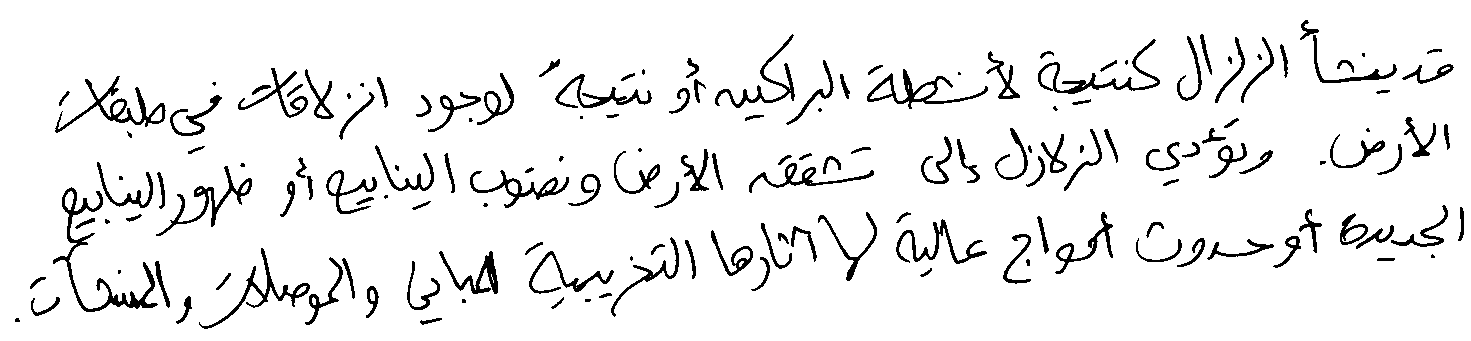 قد ينشأ الزلزال كنتيجة لأنشطة البراكين أو نتيجة لوجود انزلاقات في طبقات
الأرض. وتؤدي الزلازل إلى تشقق الأرض ونضوب الينابيع أو ظهور الينابيع
الجديدة أو حدوث أمواج عالية لها آثارها التخريبية المباني والموصلات والمنشآت.